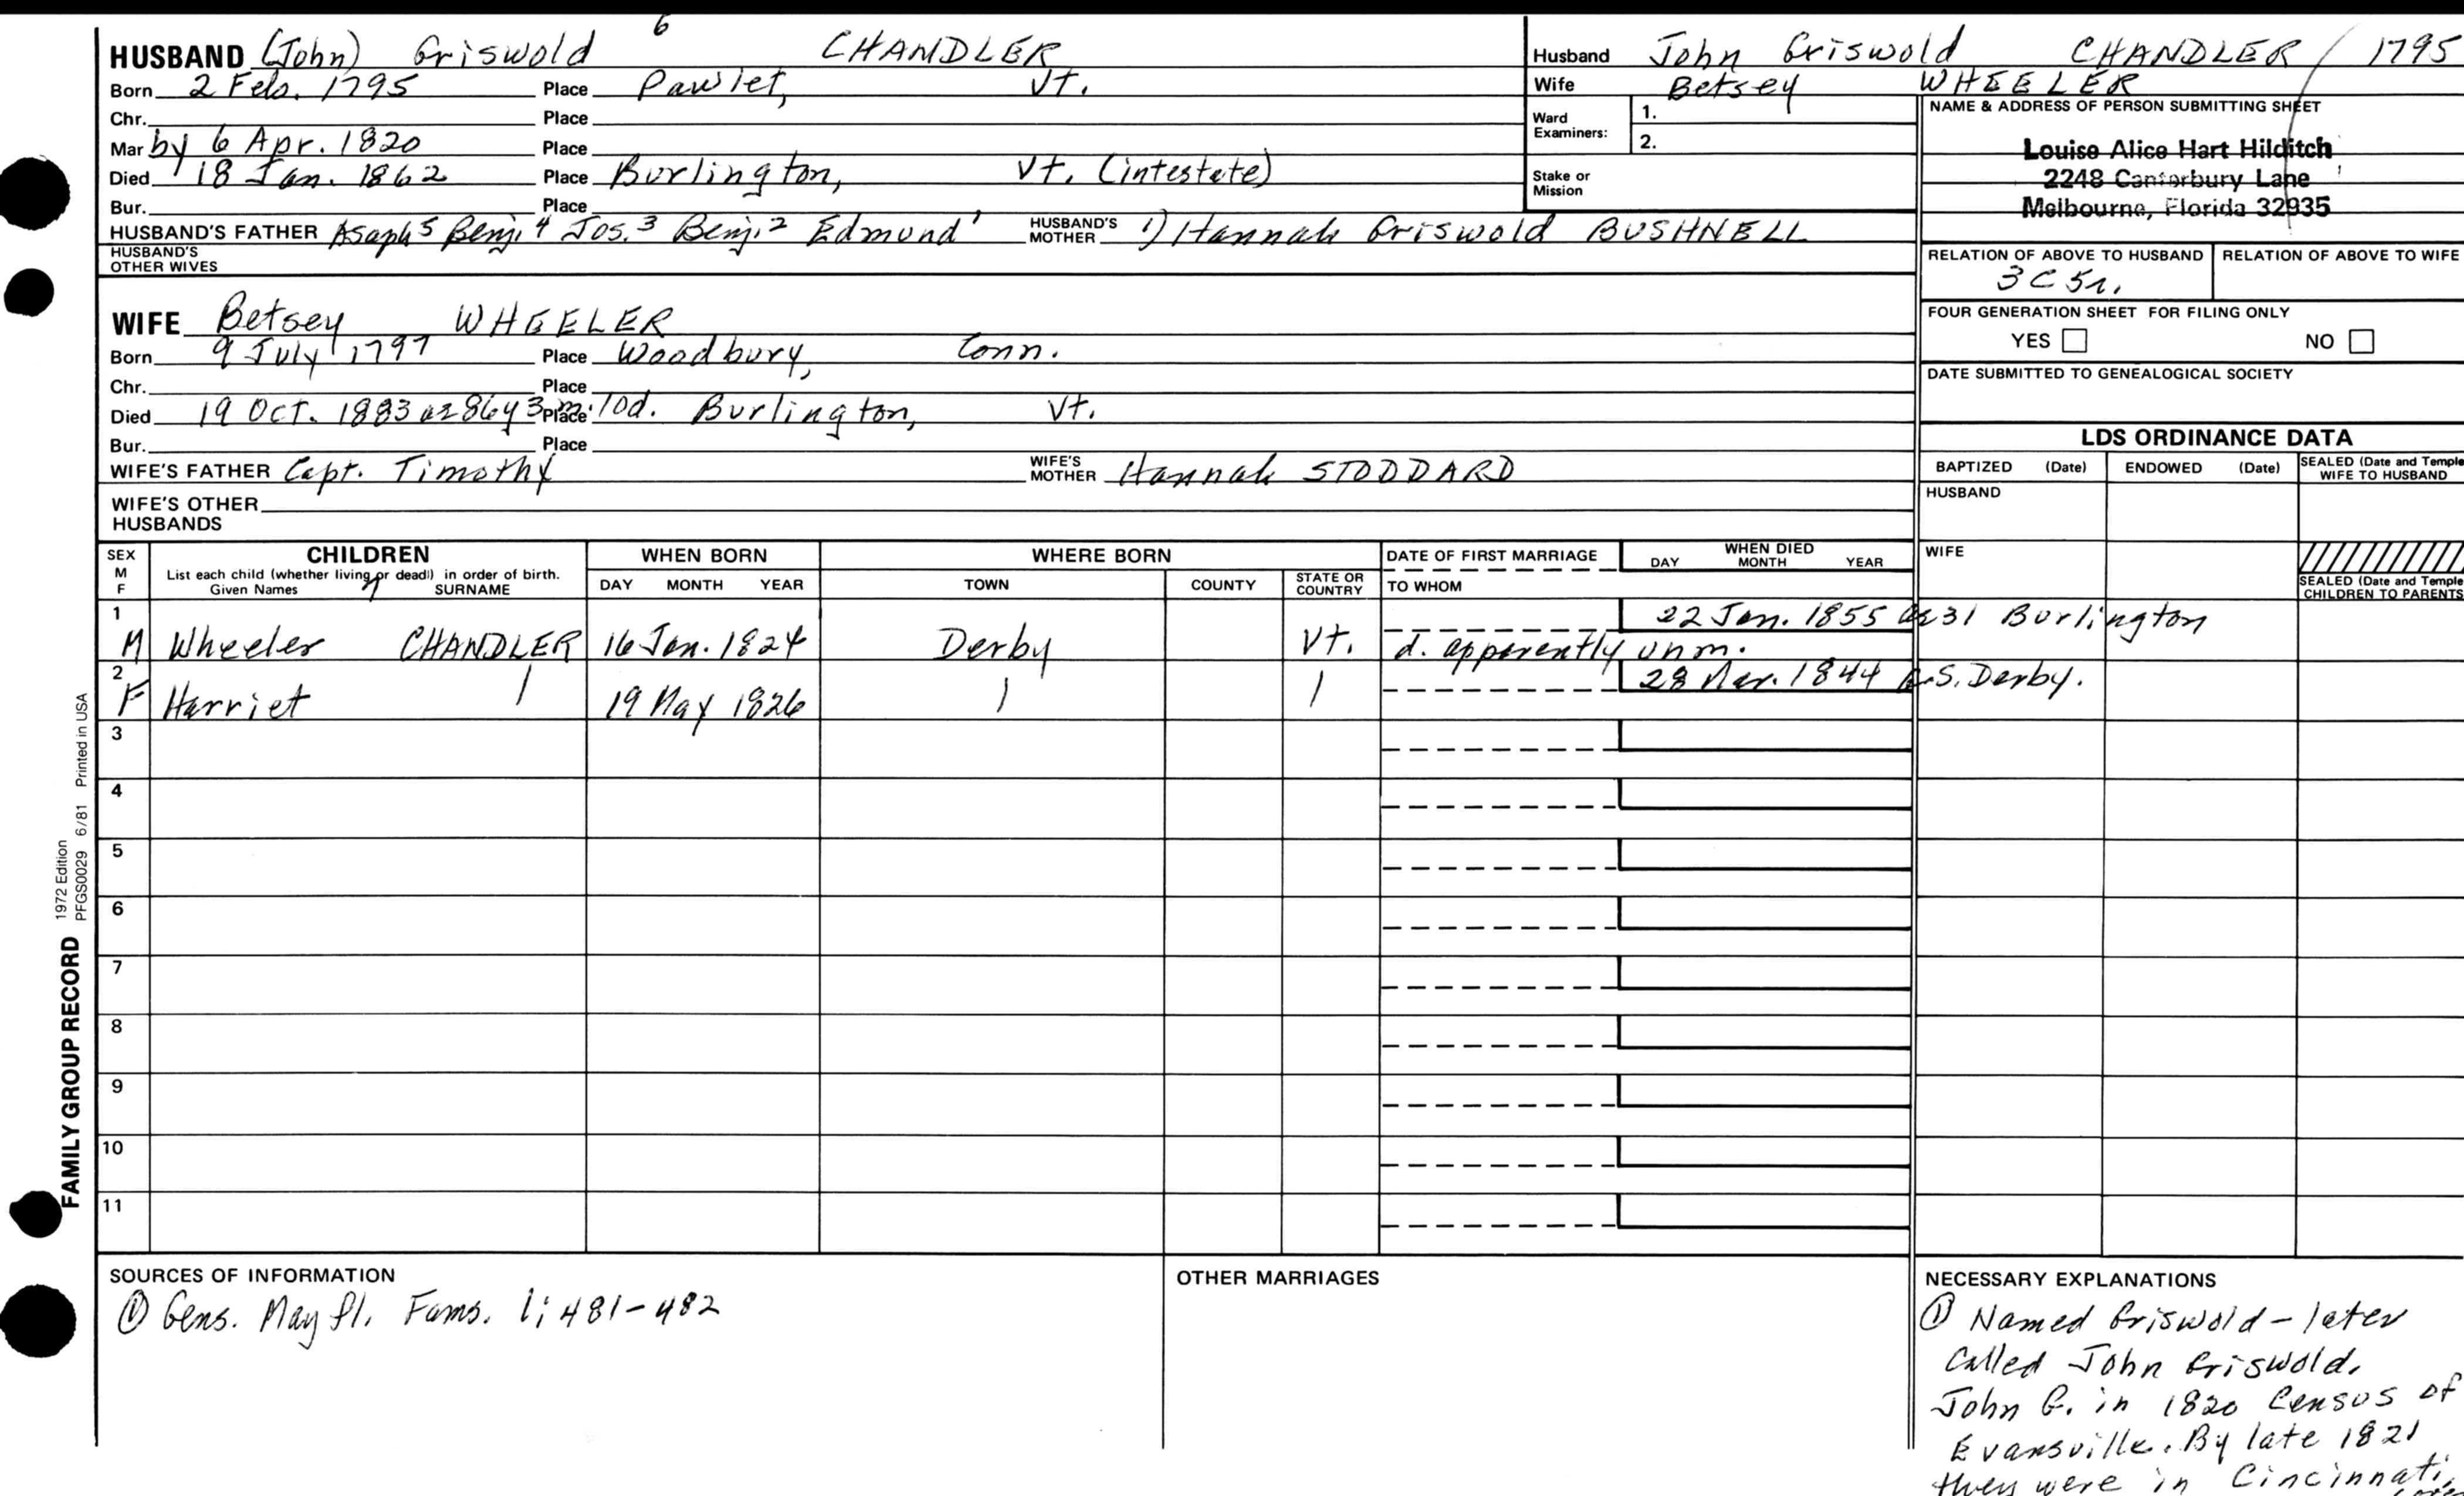 HUSBAND (John) Griswold 6 CHANDLER
Born 2 Feb. 1795 Place Pawlet, Vt.
Chr. Place
Mar by 6 Apr. 1820 Place
Died 18 Jan. 1862 Place Burlington, Vt. (intestate)
Bur. Place
HUSBAND'S FATHER Asaph 5 Benj. 4 Jos. 3 Benj. 2 Edmund 1 HUSBAND'S MOTHER 1) Hannah Griswold BUSHNELL
HUSBAND'S OTHER WIVES
WIFE Betsey WHEELER
Born 9 July 1797 Place Woodbury, Conn.
Chr. Place
Died 19 Oct. 1883 ae 86y 3m. 10d. Place Burlington, Vt.
Bur. Place
WIFE'S FATHER Capt. Timothy WIFE'S MOTHER Hannah STODDARD
WIFE'S OTHER HUSBANDS
Husband John Griswold CHANDLER / 1795
Wife Betsey WHEELER
Ward Examiners: 1.
2.
Stake or Mission
NAME & ADDRESS OF PERSON SUBMITTING SHEET
Louise Alice Hart Hilditch
2248 Canterbury Lane
Melbourne, Florida 32935
RELATION OF ABOVE TO HUSBAND RELATION OF ABOVE TO WIFE
3C5r.
FOUR GENERATION SHEET FOR FILING ONLY
YES NO
DATE SUBMITTED TO GENEALOGICAL SOCIETY
LDS ORDINANCE DATA
BAPTIZED (Date) ENDOWED (Date) SEALED (Date and Temple) WIFE TO HUSBAND
HUSBAND
WIFE
SEALED (Date and Temple) CHILDREN TO PARENTS
SEX M F CHILDREN WHEN BORN WHERE BORN DATE OF FIRST MARRIAGE WHEN DIED
List each child (whether living or dead) in order of birth.
Given Names SURNAME DAY MONTH YEAR TOWN COUNTY STATE OR COUNTRY TO WHOM DAY MONTH YEAR
1 22 Jan. 1855 ae 31 Burlington
M Wheeler CHANDLER 16 Jan. 1824 Derby Vt. d. apparently unm.
2 28 Mar. 1844 .S. Derby.
F Harriet 19 May 1826
3
4
5
6
7
8
9
10
11
SOURCES OF INFORMATION
① Gens. Mayfl. Fams. 1; 481-482
OTHER MARRIAGES
NECESSARY EXPLANATIONS
① Named Griswold - later
Called John Griswold.
John G. in 1820 Census of
Evansville. By late 1821
they were in Cincinnati,
FAMILY GROUP RECORD
1972 Edition
PFGS0029 6/81 Printed in USA